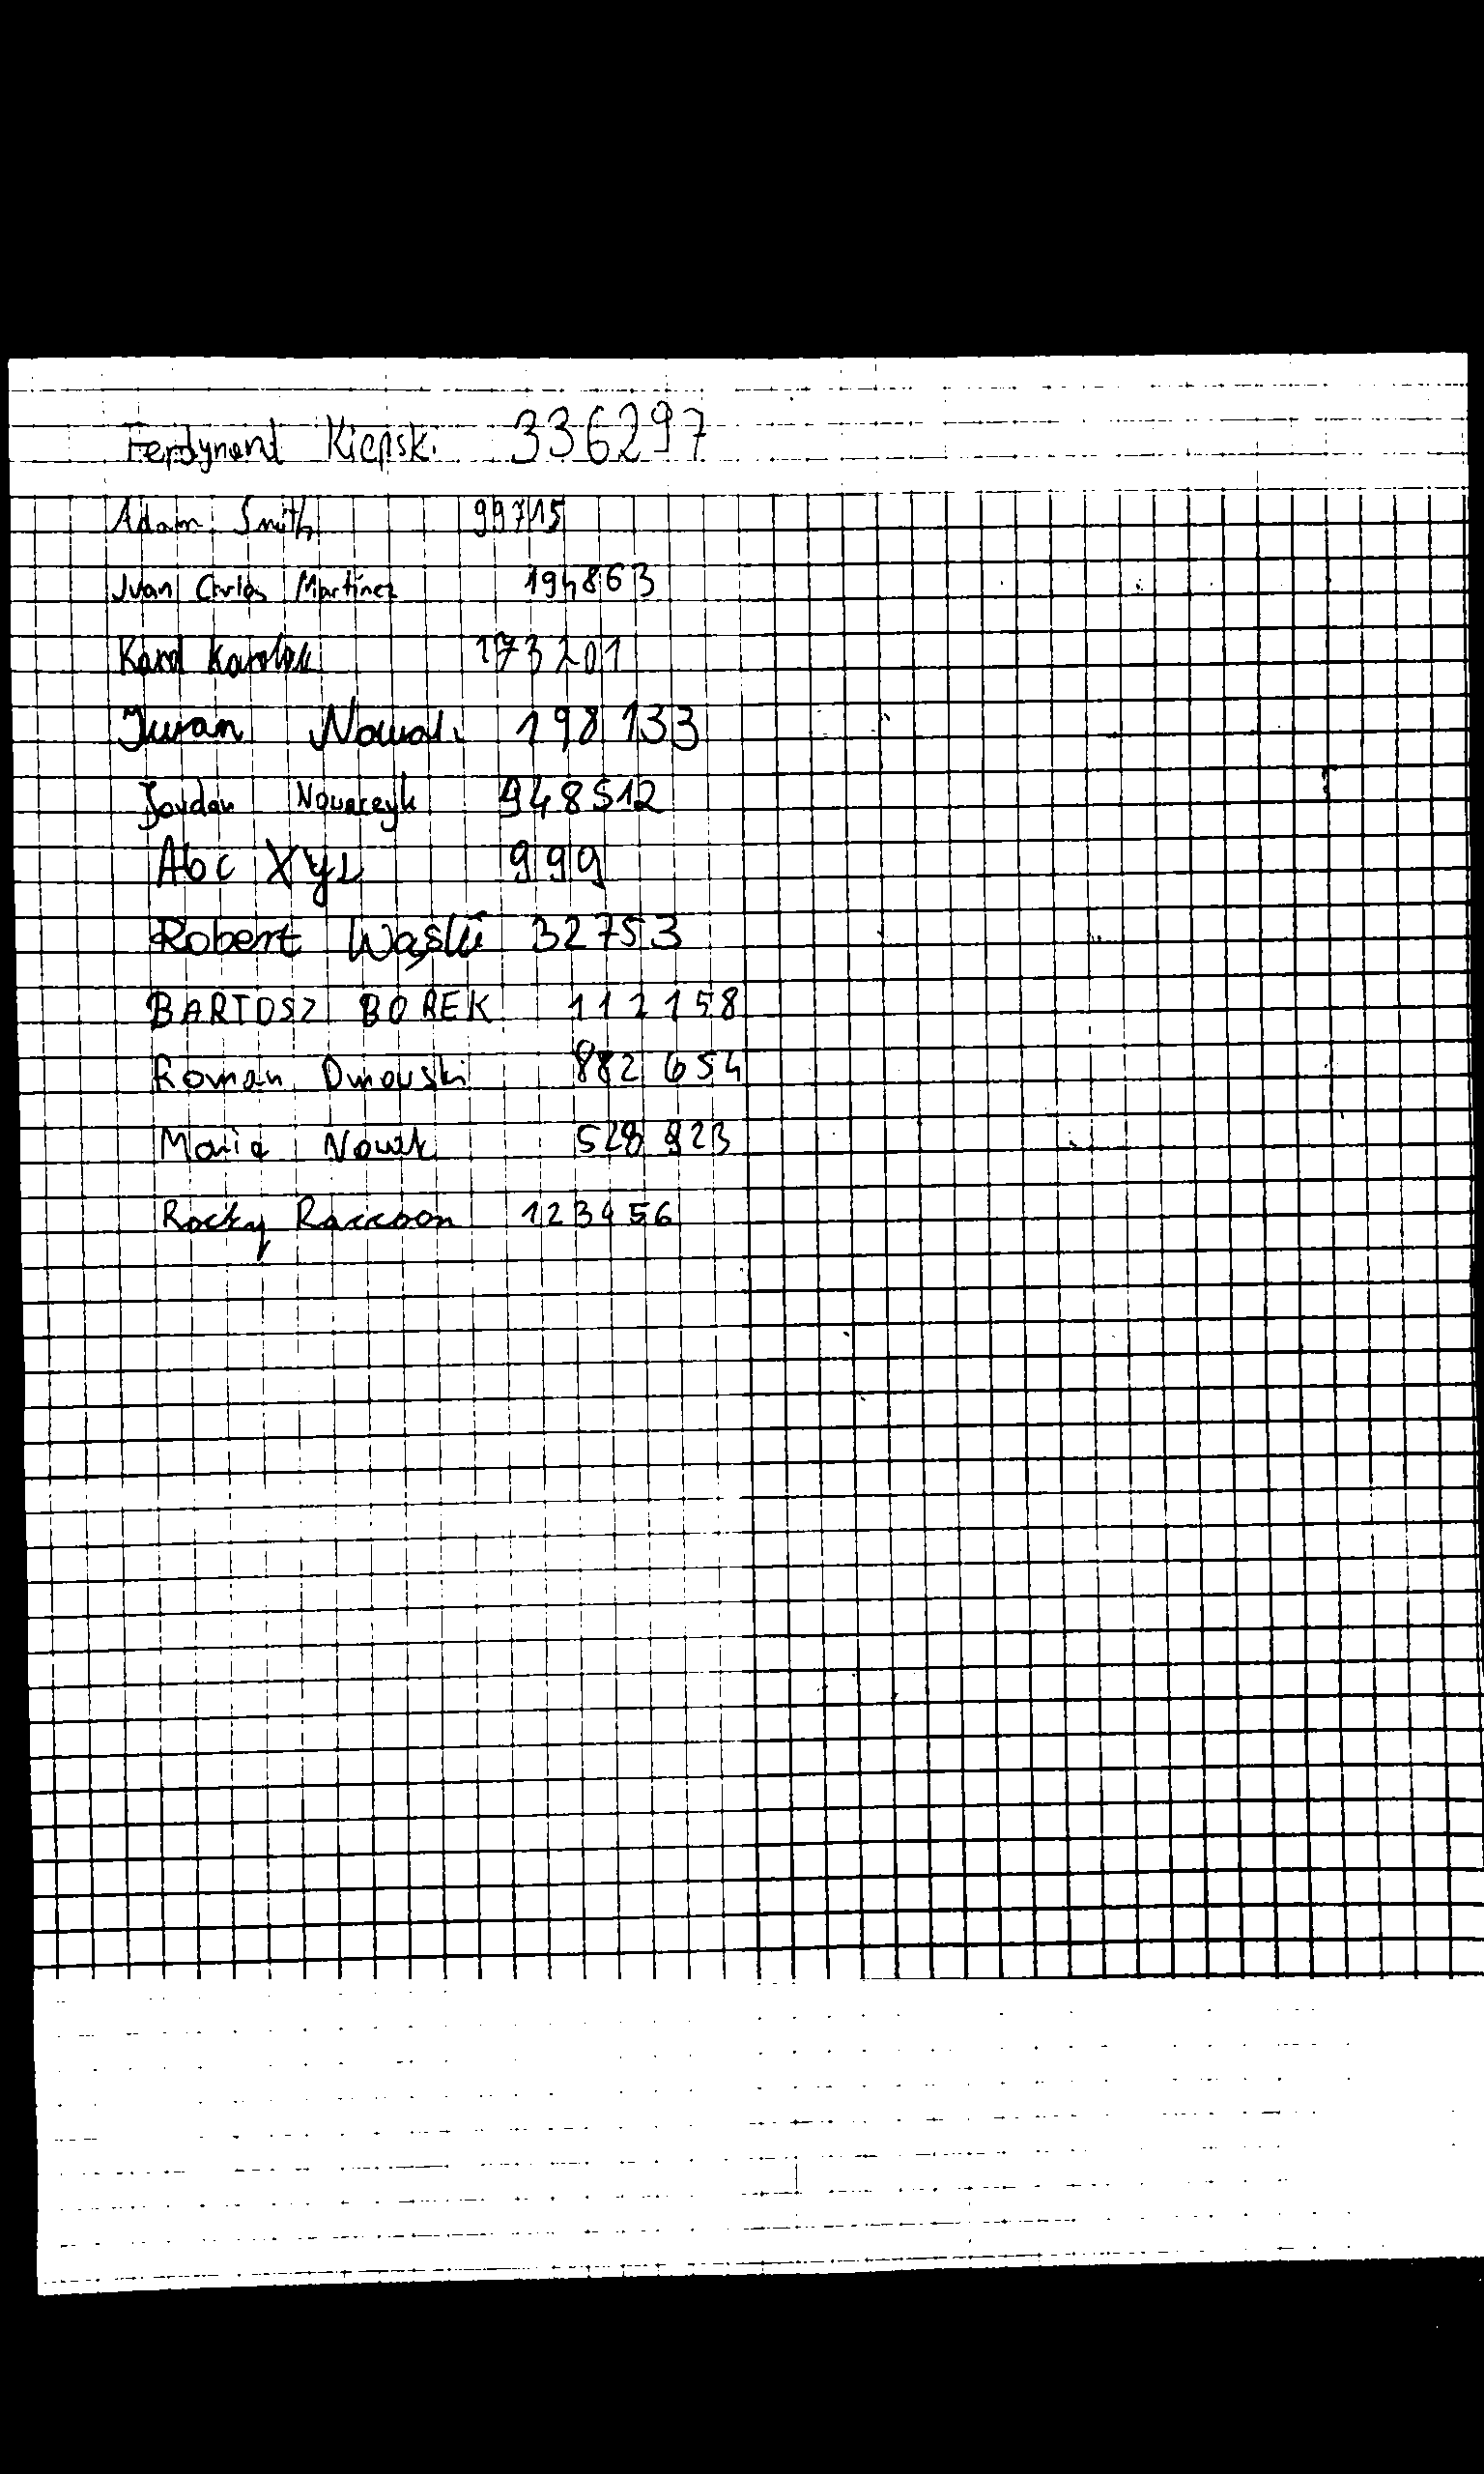 Ferdynand Kiepski 336297
Adam Smith 99715
Juan Carlos Martínez 194863
Karol Karolak 173201
Juran Nowak 198133
Jordan Nowarczyk 948512
Abc Xyz 999
Robert 32753
BARTOSZ BOREK 112158
Roman Dmowski 882654
Maria Nowak 528923
Rocky Raccoon 123456